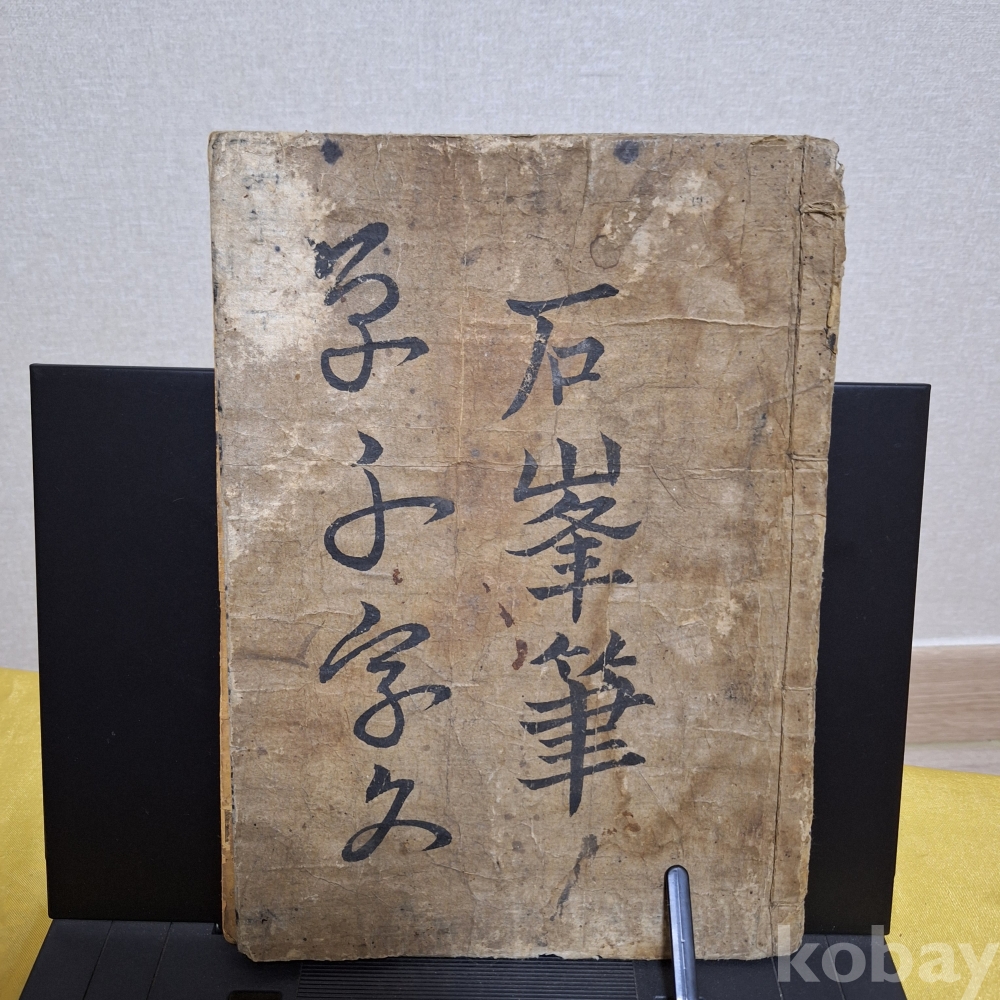 石峯筆
草千字文
kobay